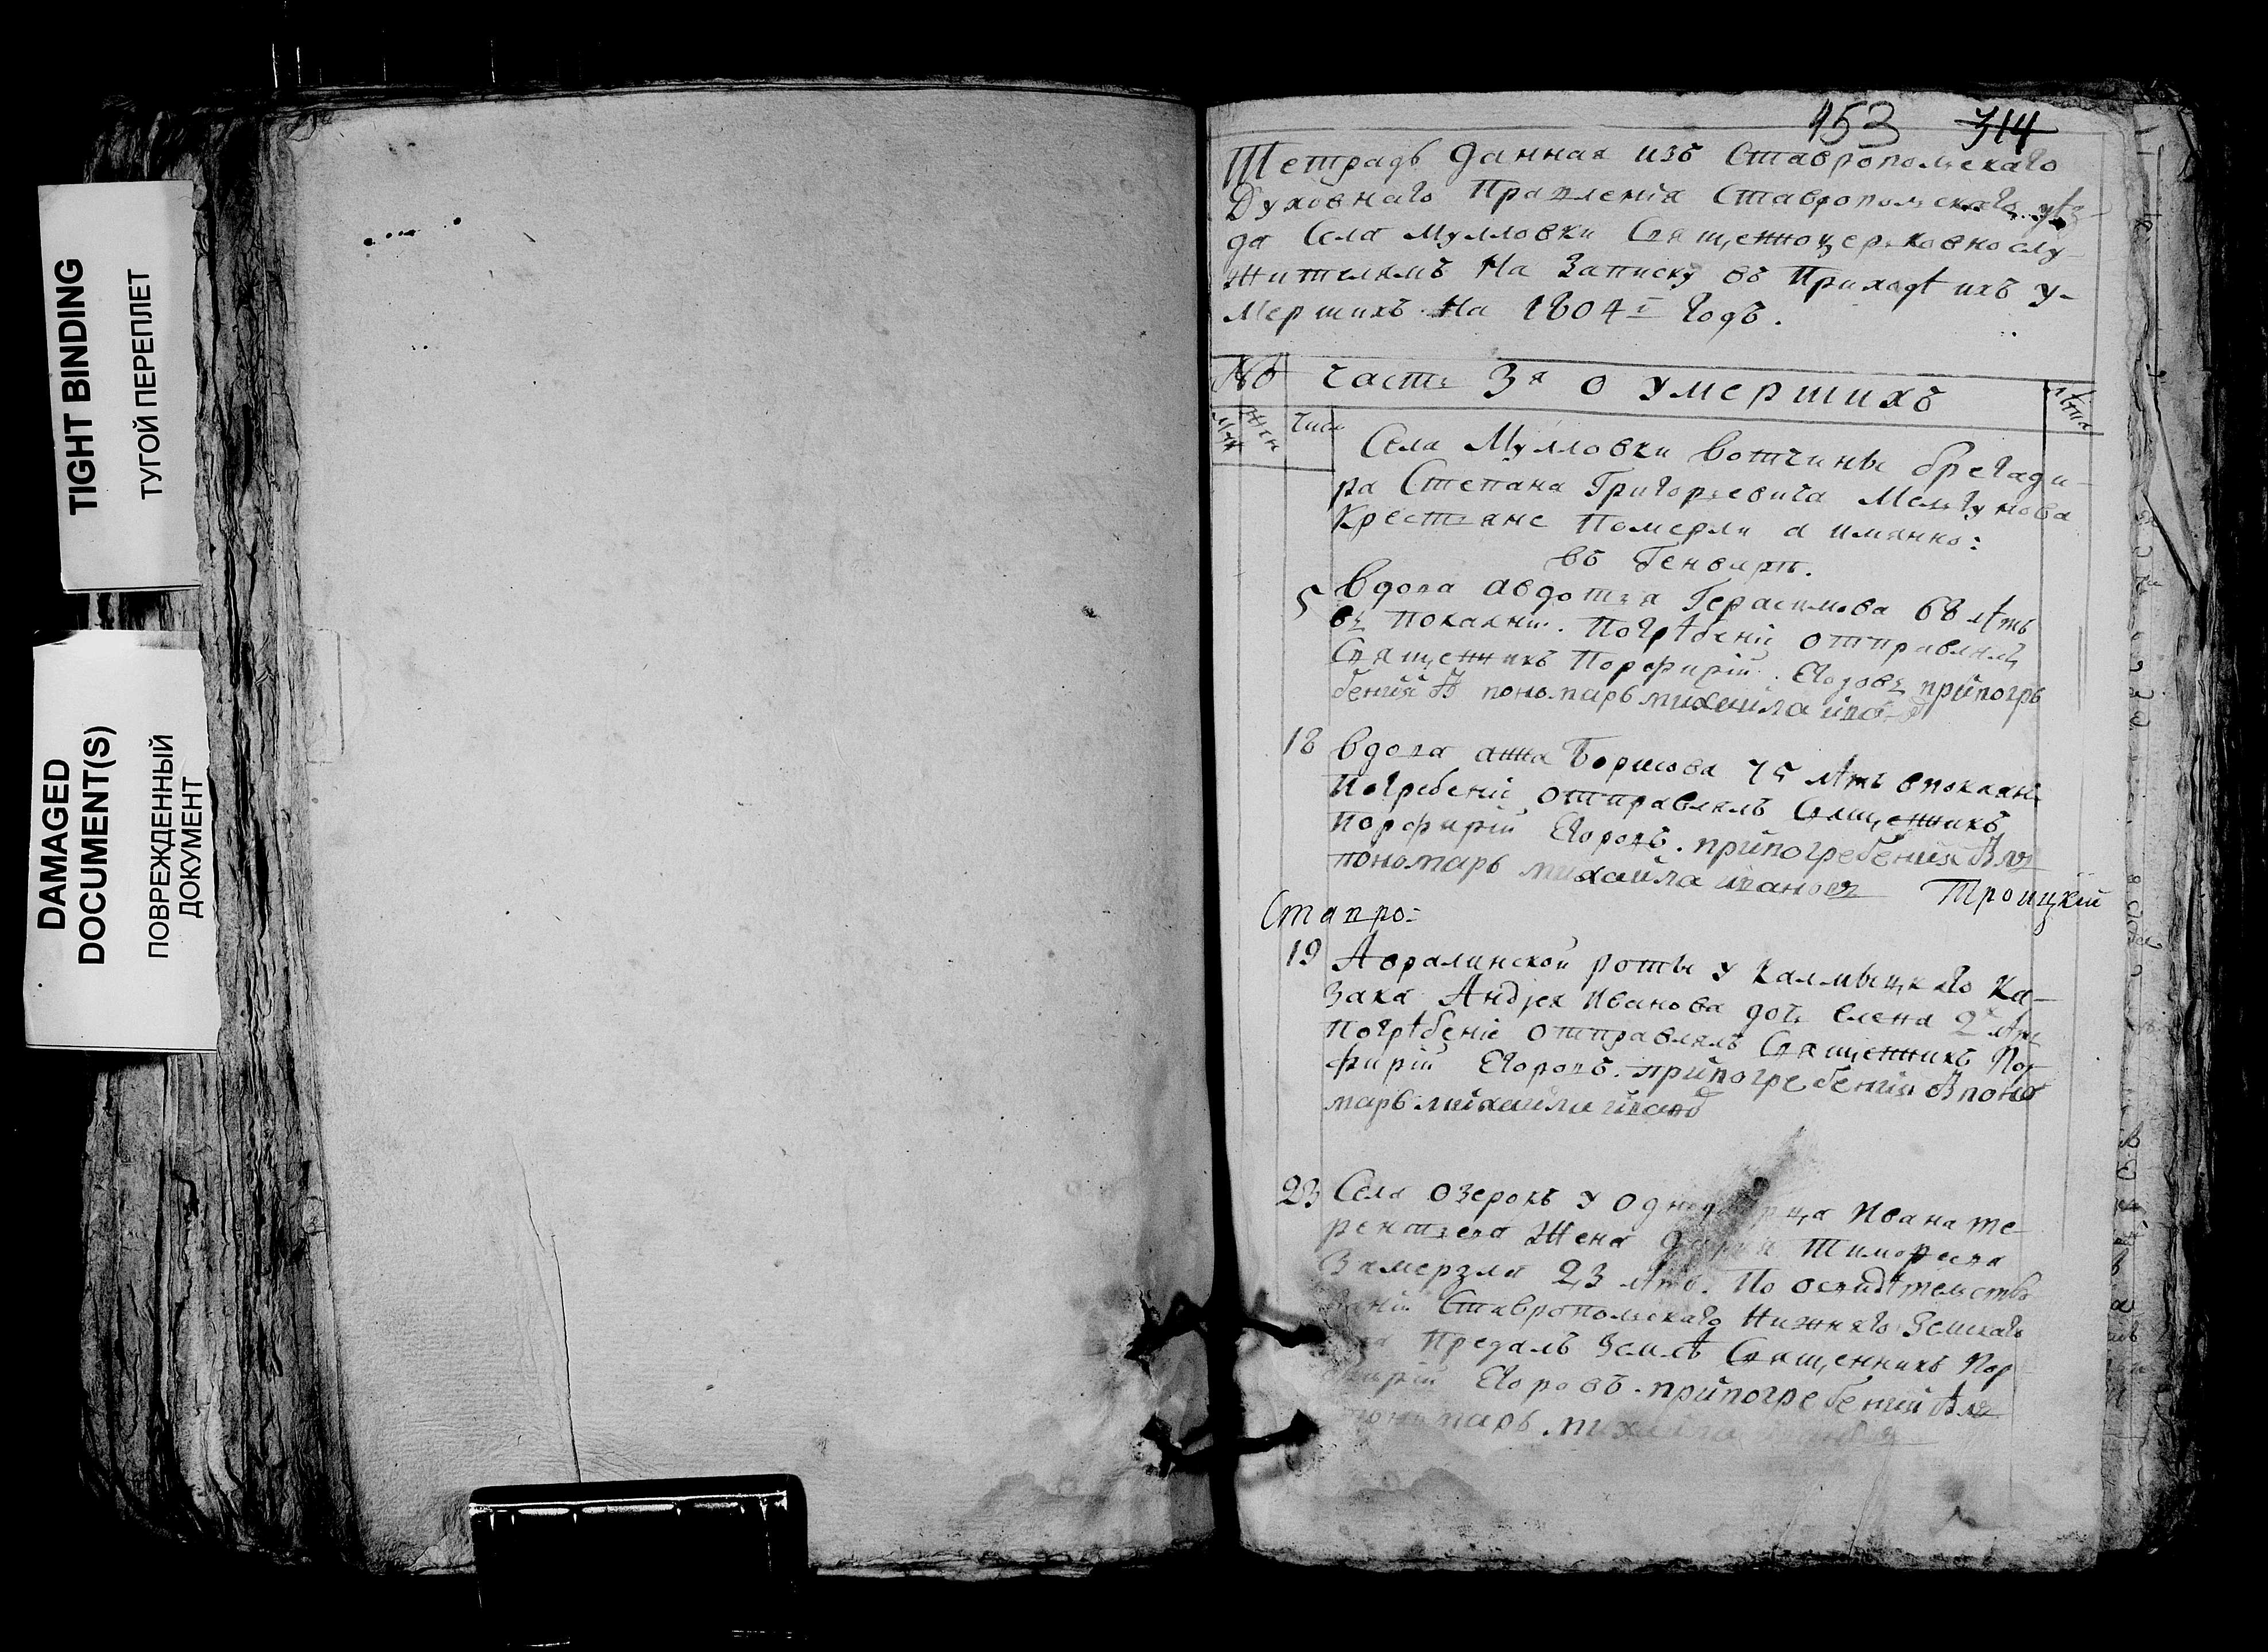 TIGHT BINDING
ТУГОЙ ПЕРЕПЛЕТ
DAMAGED
DOCUMENT(S)
ПОВРЕЖДЕННЫЙ
ДОКУМЕНТ
953 314
Тетрадь данная изъ Ставропольскаго
Духовнаго Правленія Ставропольскаго уѣз-
да Села Мулловки Священноцерковнослу-
жителямъ На Записку въ Приходѣ ихъ у-
мершихъ На 1804 Годъ.
№ Часть 3я о умершихъ лѣта
Муж Жен Числ
Села Мулловки вотчины брегади-
ра Степана Григорьевича Мельгунова
Крестьяне Померли а имянно:
въ Генваръ.
5 вдова авдотья Герасимова 68 лѣтъ
въ покаянии. Погрѣбеніе отправлялъ
Священникъ Порфирій Егоровъ при погрѣ
бении пономарь михаила
18 вдова анна Борисова 75 лѣтъ в покаян
Погребеніе отправлялъ Священникъ
Порфирій Егоровъ. при погребении
пономарь михайла ивановъ Троицкій
Ставро:
19 Авралинской роты у Калмыцкаго Ка-
зака Андрея Иванова дочь Елена 2х лѣт
Погрѣбеніе отправлялъ Священникъ Пор
фирій Егоровъ. при погребении поно
марь михаила
23 Села озерокъ у Ивана те
рентьева Жена Тимофеева
Замерзла 23 лѣтъ. По освидѣтельство
Ставропольскаго Нижняго Земскаго
Предалъ Землѣ Священникъ Пор
фирій Егоровъ. при погребении
пономарь. михайла